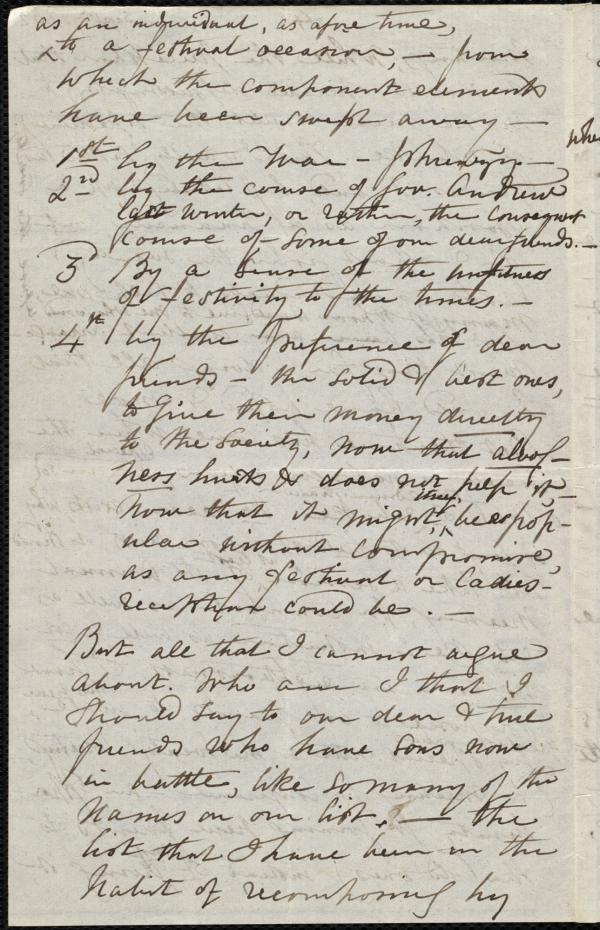 as an individual, as afore time,
to a festival occasion, — from
which the component elements
have been swept away —
1st by the War —
2nd by the course of Gov. Andrew
last winter, or rather, the consequent
course of some of our dear friends. —
3d By a sense of the unfitness
of festivity to the times. —
4th by the preference of dear
friends — the solid & best ones,
to give their money directly
to the Society, now that aloof-
ness hurts & does not help it, —
now that it might, be as pop-
ular without compromise,
as any festival or Ladies-
reception could be. —
But all that I cannot argue
about. Who am I that I
should say to our dear & true
friends who have sons now
in battle, like so many of the
names on our list, — the
list that I have been in the
habit of recomposing by